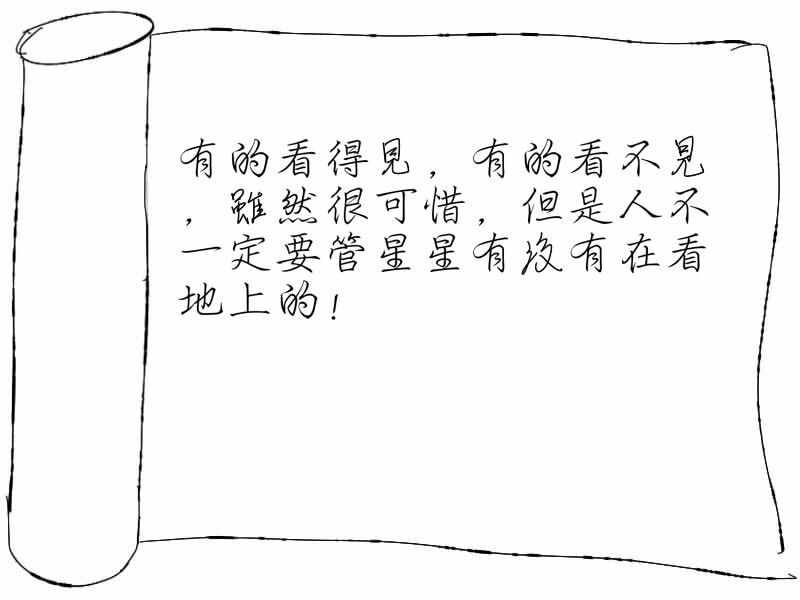 有的看得見，有的看不見
，雖然很可惜，但是人不
一定要管星星有沒有在看
地上的！